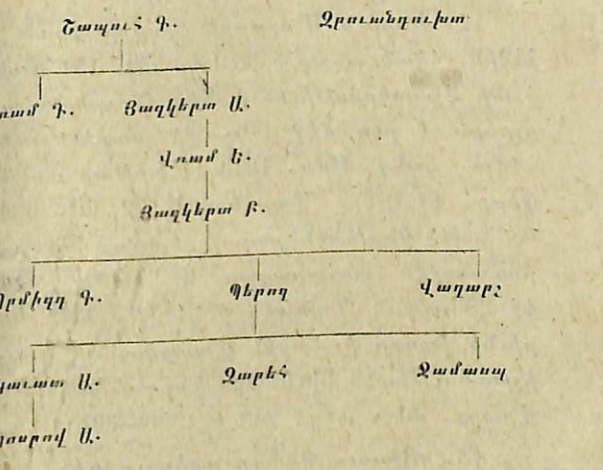 Շապուհ Գ. Զրուանդուխտ
ռամ Դ. Յազկերտ Ա.
Վռամ Ե.
Յազկերտ Բ.
րմիզդ Գ. Պերոզ Վաղարշ
ւատ Ա. Զարեհ Ջամասպ
ոսրով Ա.